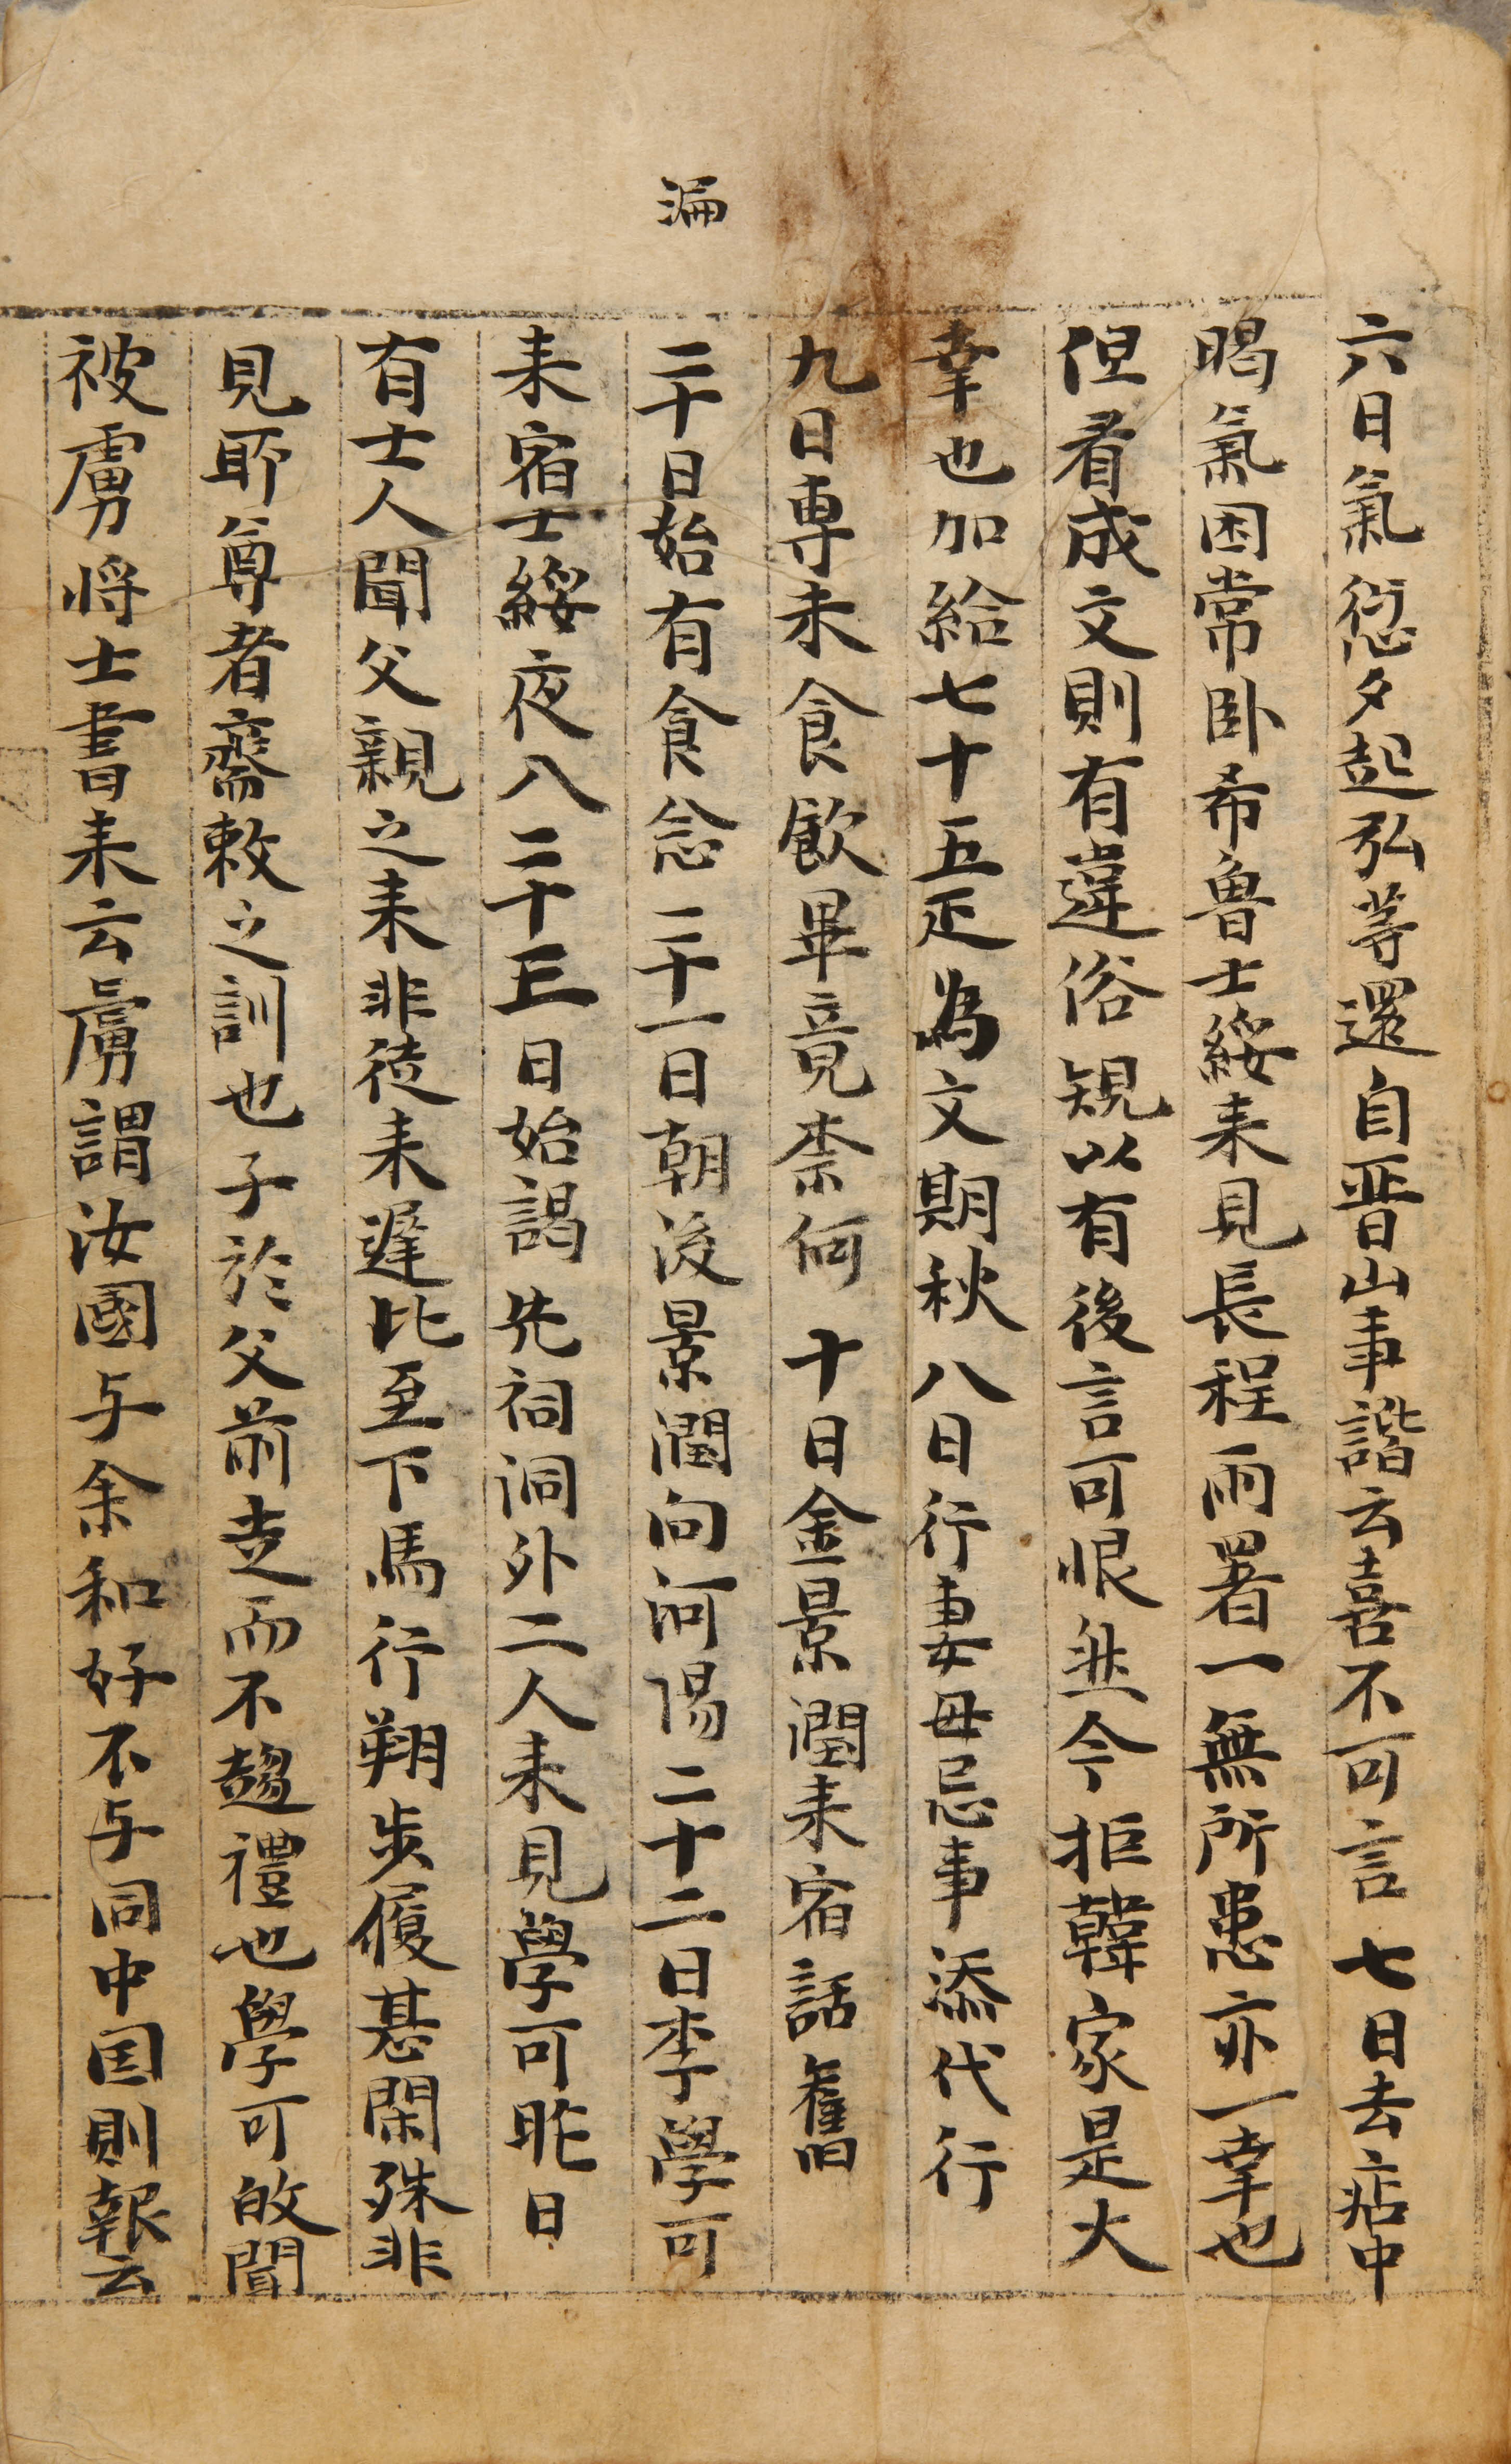 漏
六日氣愆夕起弘等還自晋山事諧云喜不可言 七日去痁中
暍氣困常卧希魯士綏来見長程雨署一無所患亦一幸也
但看成文則有違俗規以有後言可恨無今拒韓家是大
幸也加給七十五疋為文期秋八日行妻母忌事添代行
九日専未食飲畢竟柰何 十日金景潤来宿話舊
二十日始有食念 二十一日朝後景潤向河陽二十二日李學可
来宿士綏夜入二十三日始謁 先祠洞外二人来見學可昨日
有士人聞父親之来非徒来遲比至下馬行翔步履甚閑殊非
見耶尊者齋敕之訓也子於父前走而不趨禮也學可故聞
被虜将士書来云虜謂汝國与余和好不与同中国則報云